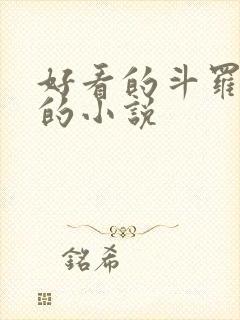 好看的斗羅
的小說
銘希